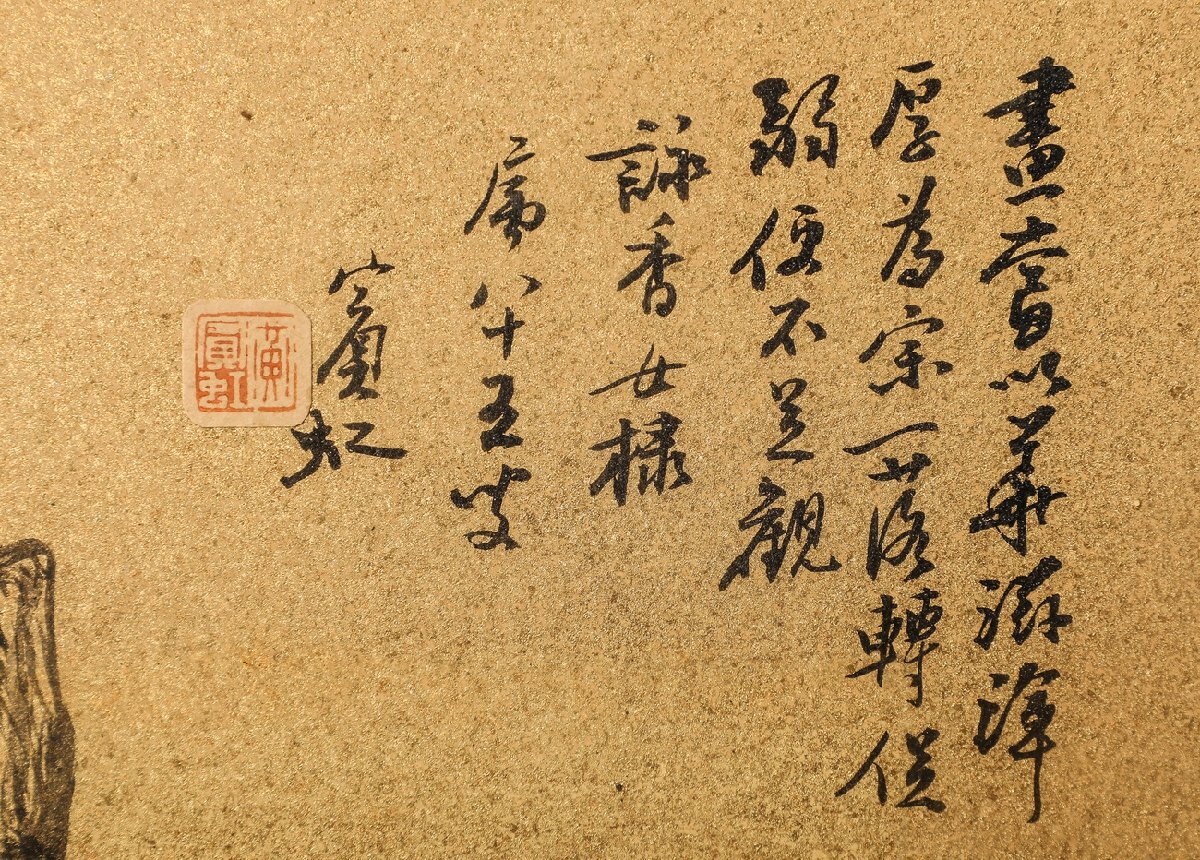 畫當以華滋渾
厚為宗一落轉促
弱便不足觀
詠香女棣
屬八十五叟
賓虹
黃賓虹